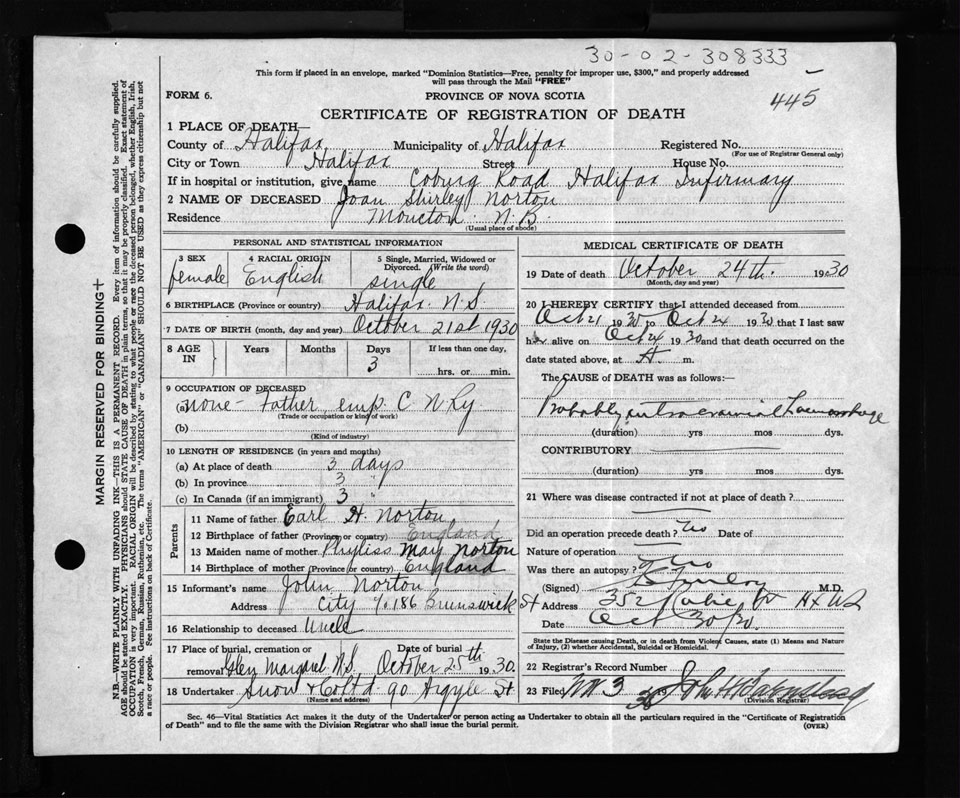 30-02-308333
This form if placed in an envelope, marked "Dominion Statistics—Free, penalty for improper use, $300," and properly addressed
will pass through the Mail "FREE"
FORM 6.
PROVINCE OF NOVA SCOTIA
445
CERTIFICATE OF REGISTRATION OF DEATH
1 PLACE OF DEATH—
County of Halifax Municipality of Halifax Registered No.
(For use of Registrar General only)
City or Town Halifax Street House No.
If in hospital or institution, give name Coburg Road Halifax Infirmary
2 NAME OF DECEASED Joan Shirley Norton
Residence Moncton N.B.
(Usual place of abode)
PERSONAL AND STATISTICAL INFORMATION
3 SEX 4 RACIAL ORIGIN 5 Single, Married, Widowed or
Divorced. (Write the word)
female English single
6 BIRTHPLACE (Province or country) Halifax N.S.
7 DATE OF BIRTH (month, day and year) October 21st 1930
8 AGE IN Years Months Days If less than one day,
3 hrs. or min.
9 OCCUPATION OF DECEASED
(a) none - Father emp. C N Ry
(Trade or occupation or kind of work)
(b)
(Kind of industry)
10 LENGTH OF RESIDENCE (in years and months)
(a) At place of death 3 days
(b) In province 3 "
(c) In Canada (if an immigrant) 3 "
Parents
11 Name of father Earl H. Norton
12 Birthplace of father (Province or country) England
13 Maiden name of mother Phyliss May Norton
14 Birthplace of mother (Province or country) England
15 Informant's name John Norton
Address City 90 186 Brunswick St
16 Relationship to deceased Uncle
17 Place of burial, cremation or removal Date of burial
Margaret N.S. October 25th 1930
18 Undertaker Snow & Co Ltd 90 Argyle St
(Name and address)
MEDICAL CERTIFICATE OF DEATH
19 Date of death October 24th. 1930
(Month, day and year)
20 I HEREBY CERTIFY that I attended deceased from
Oct 21 1930 to Oct 24 1930 that I last saw
h alive on Oct 24 1930 and that death occurred on the
date stated above, at A. m.
The CAUSE OF DEATH was as follows:—
Probably intracranial haemorrhage
(duration) yrs mos dys.
CONTRIBUTORY
(duration) yrs mos dys.
21 Where was disease contracted if not at place of death?
Did an operation precede death? No Date of
Nature of operation
Was there an autopsy? No
(Signed) M.D.
Address 352
Date Oct 30/30.
State the Disease causing Death, or in death from Violent Causes, state (1) Means and Nature
of Injury, (2) whether Accidental, Suicidal or Homicidal.
22 Registrar's Record Number
23 Filed Nov 3 1930 John H
(Division Registrar)
Sec. 46—Vital Statistics Act makes it the duty of the Undertaker or person acting as Undertaker to obtain all the particulars required in the "Certificate of Registration
of Death" and to file the same with the Division Registrar who shall issue the burial permit.
(OVER)
MARGIN RESERVED FOR BINDING+
N.B.—WRITE PLAINLY WITH UNFADING INK—THIS IS A PERMANENT RECORD. Every item of information should be carefully supplied.
AGE should be stated EXACTLY. PHYSICIANS should STATE CAUSE OF DEATH in plain terms, so that it may be properly classified. Exact statement of
OCCUPATION is very important. RACIAL ORIGIN will be described by stating to what people or race the deceased person belonged, whether English, Irish,
Scotch, French, German, Russian, Ruthenian, etc. The terms "AMERICAN" or "CANADIAN" SHOULD NOT BE USED as they express citizenship but not
a race or people. See instructions on back of Certificate.